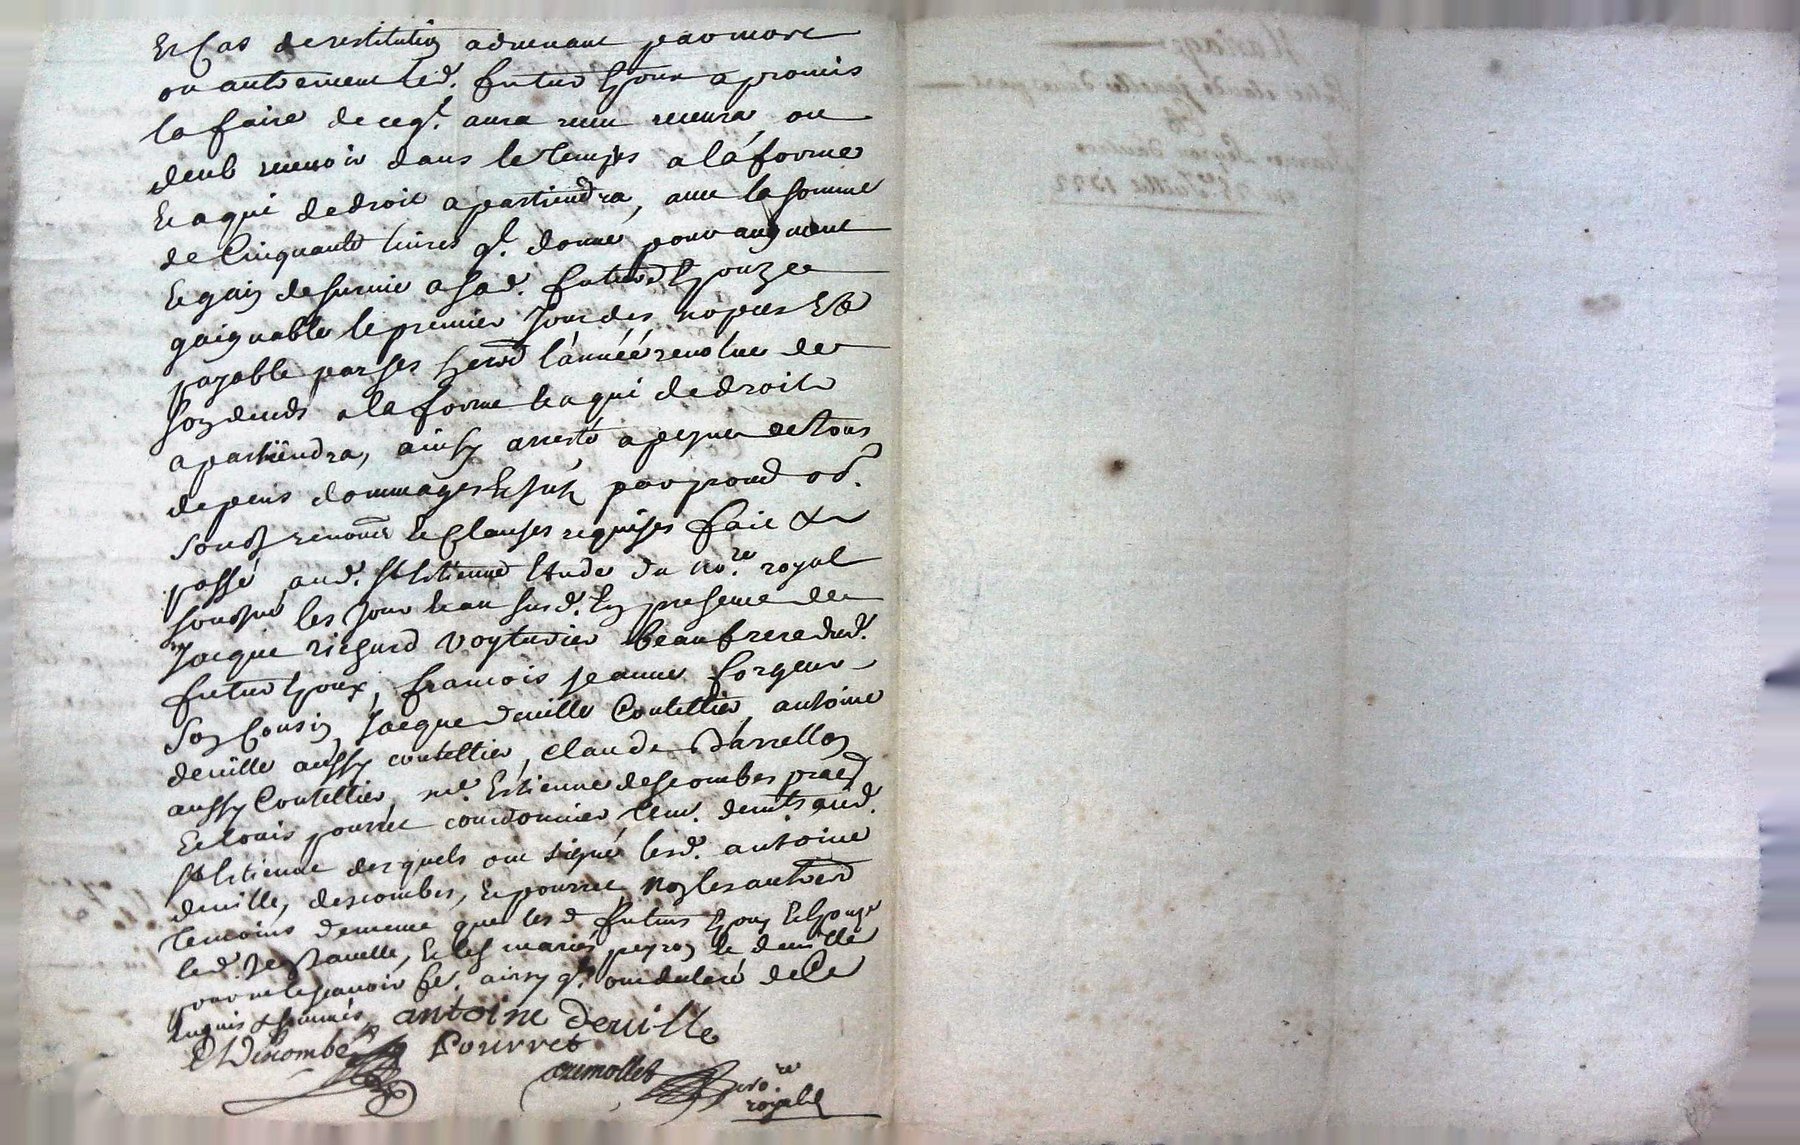 Et cas de restitution advenant par mort
ou autrement led. futur Epoux a promis
la faire de ce q.l aura receu recevra ou
deub recevoir dans le temps a la forme
Et a qui de droit apartiendra, avec la somme
de Cinquante livres q.l donne pour augment
Et gain de survie a sad. future Epouze
gaignable le premier Jour des nopces Et
payable par ses hers l'année revolue de
son deceds a la forme Et a qui de droit
apartiendra, ainsy arresté a peyne de tous
depens dommages Et Int. par prom. ob.
soub. renon. Et Clauses requises fait &
passé aud. St Estienne Etude du no.re royal
soubsné les Jour Et an susd. En presence de
Jacque richard voyturier beaufrere dud.
futur Epoux, francois jeanne forgeur
son Cousin, Jacque deville Coutellier, antoine
deville aussy coutellier, Claude
aussy Coutellier, me. Estienne descombes pra.
Et Louis pourret courdonnier tem. demts. aud.
St Estienne des quels ont signé lesd. antoine
deville, descombes, Et pourret non les autres
temoins de meme que lesd. futurs Epoux Et Epouze
led. Et les mariés peyron Et deville
pour ne le scavoir fe. ainsy q.ls ont declaré de Ce
Enquis & sommés antoine deville
E Descombe Pourret
no.re
royal
Mariage